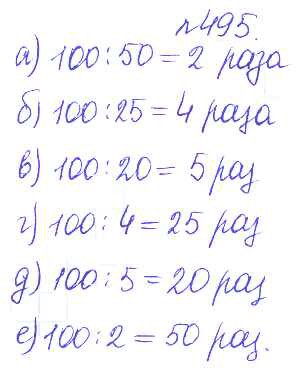 №495.
а) 100:50=2 раза
б) 100:25=4 раза
в) 100:20= 5 раз
г) 100: 4=25 раз
д) 100: 5=20 раз
е) 100:2 = 50 раз.